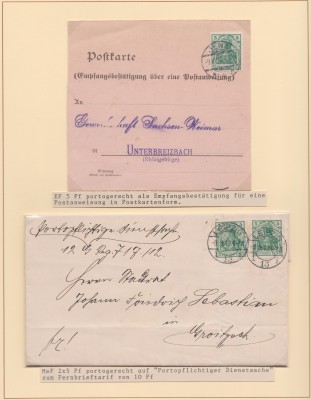 Postkarte
(Empfangsbestätigung über eine Postanweisung)
An
Gewerkschaft Sachsen-Weimar
in UNTERBREIZBACH
(Rhöngebirge)
EF 5 Pf portogerecht als Empfangsbestätigung für eine
Postanweisung in Postkartenform.
Portopflichtige Dienstsache
Herrn Stadtrat
Johann Friedrich Sebastian
in
Groitzsch
MeF 2x5 Pf portogerecht auf "Portopflichtiger Dienstsache"
zum Fernbrieftarif von 10 Pf